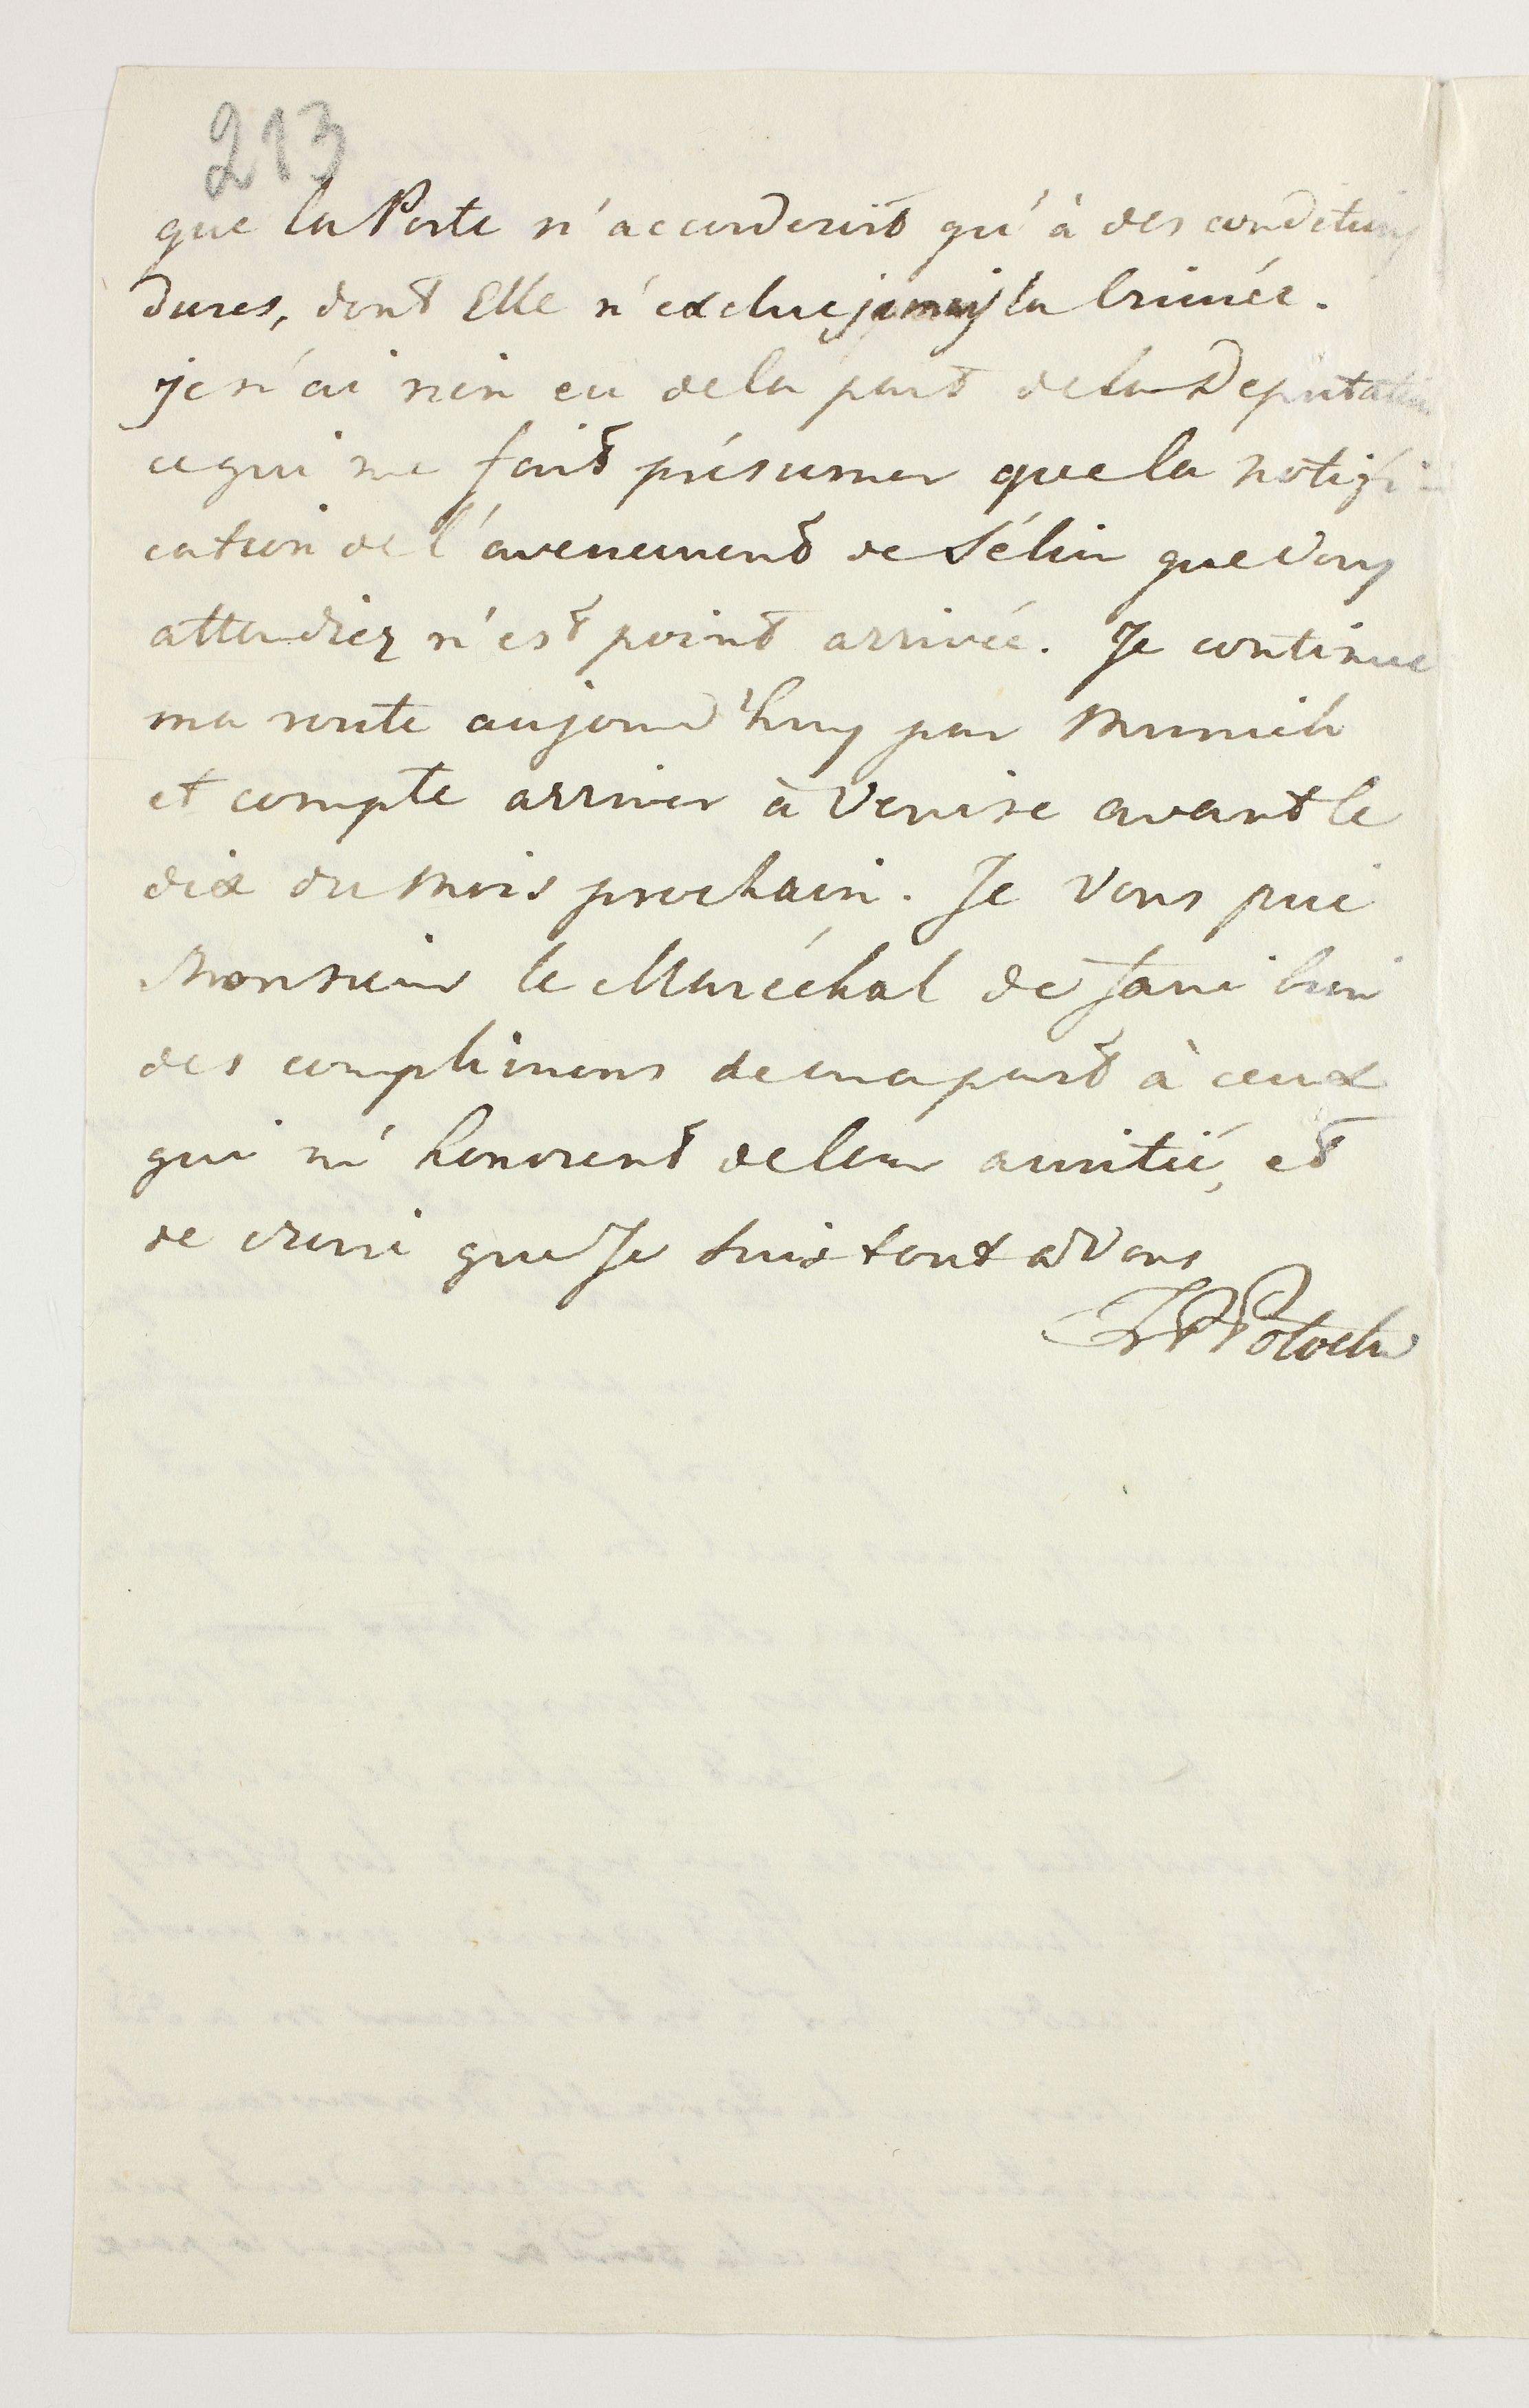 213
que la Porte n'accorderoit qu'à des conditions
dures, dont Elle n'exclue jamais la Crimée.
je n'ai rien eu de la part de la Deputation
ce qui me fait présumer que la notifi-
cation de l'avenement de Sélim que Vous
attendiez n'est point arrivée. Je continue
ma route aujourd'huy par Munich
et compte arriver à Venise avant le
dix du Mois prochain. Je Vous prie
Monsieur le Maréchal de faire bien
des complimens de ma part à ceux
qui m'honorent de leur amitié, et
de croire que Je suis tout à Vous
Potocki